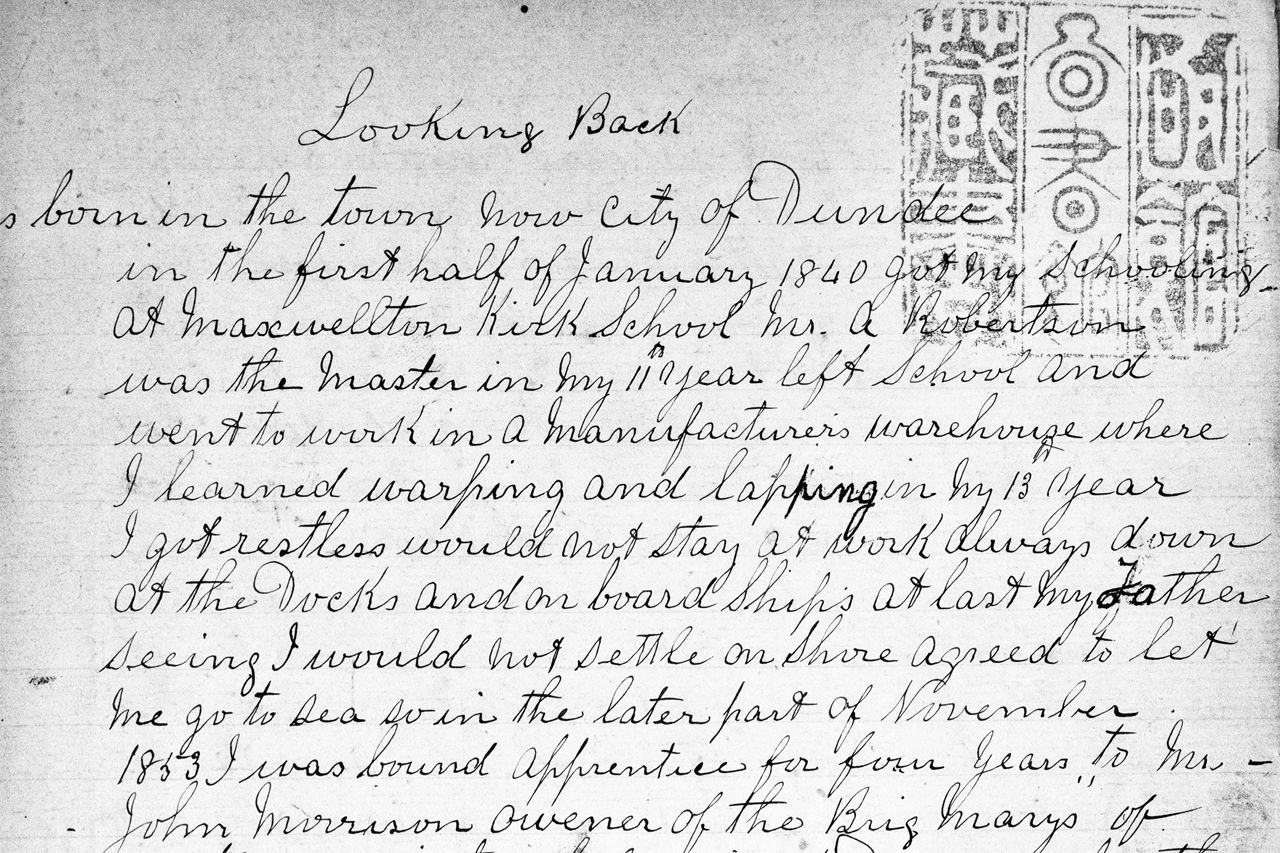 Looking Back
s born in the town now city of Dundee
in the first half of January 1840 got my schooling
at Maxwellton Kirk School Mr. A Robertson
was the Master in my 11th year left School and
went to work in a manufacturers warehouse where
I learned warping and lapping in my 13th year
I got restless would not stay at work always down
at the Docks and on board ships at last my Father
seeing I would not settle on shore agreed to let
me go to sea so in the later part of November
1853 I was bound apprentice for four years to Mr. -
John Morrison owener of the Brig "Marys" of